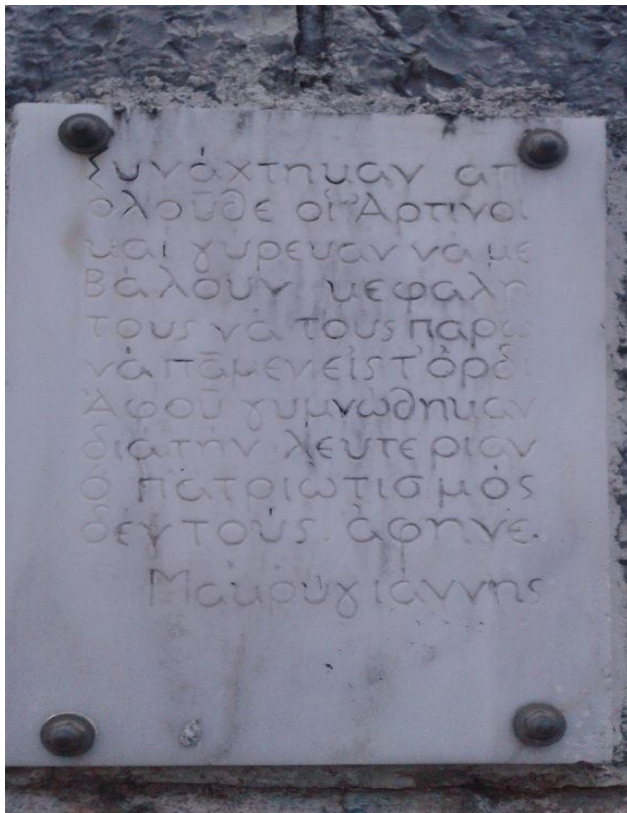 Συνάχτηκαν απ
ολοῦθε οἱ Ἀρτινοι
και γύρεψαν νὰ με
βάλουν κεφαλη
τους νὰ τους παρω
νὰ πᾶμεν εἰς τ' ὀρδι
Ἀφοῦ γυμνώθηκαν
διὰ την λευτεριαν
ὁ πατριωτισμὸς
δεν τοὺς ἀφηνε.
Μακρυγιαννης